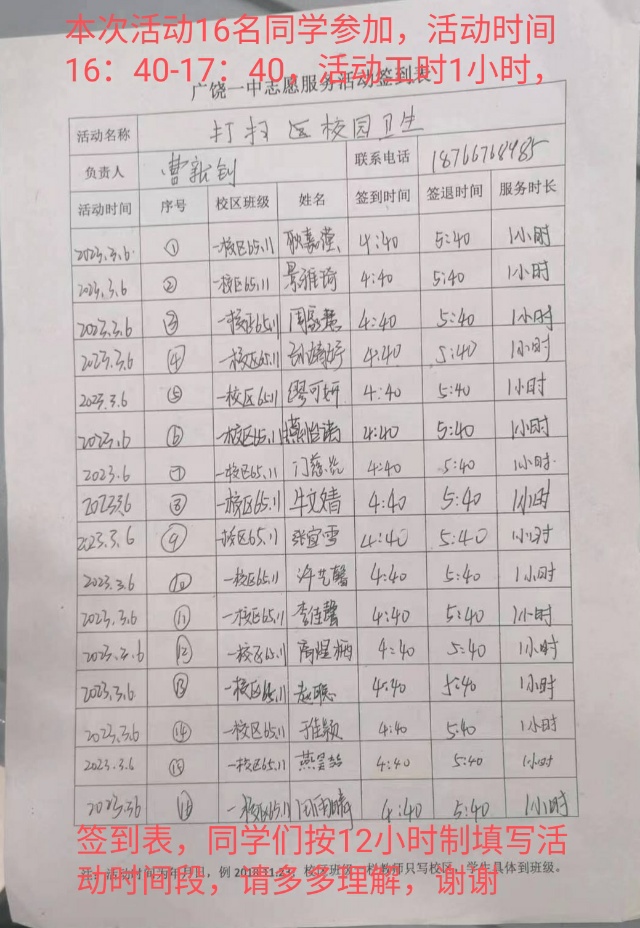 本次活动16名同学参加，活动时间
16：40-17：40，活动工时1小时，
广饶一中志愿服务活动签到表
活动名称 打扫区校园卫生
负责人 曹新刽 联系电话 18766768485
活动时间 序号 校区班级 姓名 签到时间 签退时间 服务时长
2023.3.6 ① 一校区65.11 4:40 5:40 1小时
2023.3.6 ② 一校区65.11 景雅琦 4:40 5:40 1小时
2023.3.6 ③ 一校区65.11 4:40 5:40 1小时
2023.3.6 ④ 一校区65.11 孙婧妤 4:40 5:40 1小时
2023.3.6 ⑤ 一校区65.11 缪可妍 4:40 5:40 1小时
2023.6 ⑥ 一校区65.11 4:40 5:40 1小时
2023.6 ⑦ 一校区65.11 4:40 5:40 1小时
2023.3.6 ⑧ 一校区65.11 牛文婧 4:40 5:40 1小时
2023.3.6 ⑨ 一校区65.11 张宜雪 4:40 5:40 1小时
2023.3.6 ⑩ 一校区65.11 许艺馨 4:40 5:40 1小时
2023.3.6 ⑪ 一校区65.11 李佳馨 4:40 5:40 1小时
2023.3.6 ⑫ 一校区65.11 4:40 5:40 1小时
2023.3.6 ⑬ 一校区65.11 赵聪 4:40 5:40 1小时
2023.3.6 ⑭ 一校区65.11 于佳颖 4:40 5:40 1小时
2023.3.6 ⑮ 一校区65.11 4:40 5:40 1小时
2023.3.6 ⑯ 一校区65.11 4:40 5:40 1小时
签到表，同学们按12小时制填写活
注：活动时间为年月日，例 2018.11.23，校区班级一栏教师只写校区，学生具体到班级。
动时间段，请多多理解，谢谢